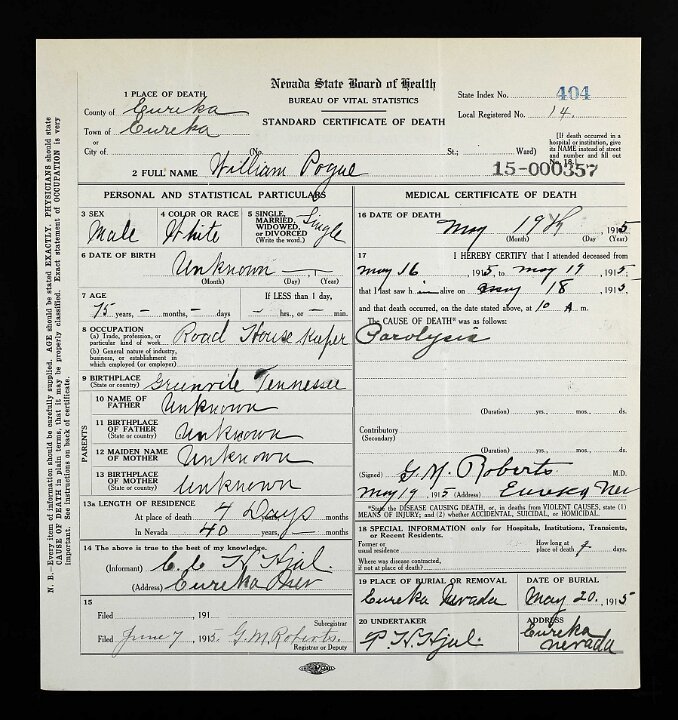 Nevada State Board of Health
BUREAU OF VITAL STATISTICS
STANDARD CERTIFICATE OF DEATH
State Index No. 404
Local Registered No. 14.
1 PLACE OF DEATH
County of Eureka
Town of Eureka
or
City of (No. St.; Ward)
[If death occurred in a hospital or institution, give its NAME instead of street and number and fill out No. 18.]
15-000357
2 FULL NAME William Pogue
PERSONAL AND STATISTICAL PARTICULARS
3 SEX
Male
4 COLOR OR RACE
White
5 SINGLE, MARRIED, WIDOWED, or DIVORCED (Write the word.)
Single
6 DATE OF BIRTH
Unknown
(Month) (Day) (Year)
7 AGE
If LESS than 1 day,
75 years, - months, - days - hrs., or - min.
8 OCCUPATION
(a) Trade, profession, or particular kind of work
Road House Keeper
(b) General nature of industry, business, or establishment in which employed (or employer)
9 BIRTHPLACE
(State or country)
Grunvile Tennessee
PARENTS
10 NAME OF FATHER
Unknown
11 BIRTHPLACE OF FATHER
(State or country)
Unknown
12 MAIDEN NAME OF MOTHER
Unknown
13 BIRTHPLACE OF MOTHER
Unknown
13a LENGTH OF RESIDENCE
At place of death 4 Days years, months
In Nevada 40 years, - months
14 The above is true to the best of my knowledge.
(Informant) Hjul.
(Address) Eureka Nev
15
Filed , 191
Subregistrar
Filed June 7 1915. G. M. Roberts.
Registrar or Deputy
MEDICAL CERTIFICATE OF DEATH
16 DATE OF DEATH
May 19th, 1915
(Month) (Day) (Year)
17 I HEREBY CERTIFY that I attended deceased from
May 16 1915, to May 19, 1915
that I last saw him alive on May 18 1915.
and that death occurred, on the date stated above, at 10 A. m.
The CAUSE OF DEATH* was as follows:
Parolysis
(Duration) yrs. mos. ds.
Contributory
(Secondary)
(Duration) yrs. mos. ds.
(Signed) G. M. Roberts M.D.
May 19, 1915 (Address) Eureka Nev
*State the DISEASE CAUSING DEATH, or, in deaths from VIOLENT CAUSES, state (1) MEANS OF INJURY; and (2) whether ACCIDENTAL, SUICIDAL, or HOMICIDAL.
18 SPECIAL INFORMATION only for Hospitals, Institutions, Transients, or Recent Residents.
Former or usual residence
How long at place of death 4 days.
Where was disease contracted, if not at place of death?
19 PLACE OF BURIAL OR REMOVAL
Eureka Nevada
DATE OF BURIAL
May 20, 1915
20 UNDERTAKER
P. H. Hjul.
ADDRESS
Eureka Nevada
N. B.—Every item of information should be carefully supplied. AGE should be stated EXACTLY. PHYSICIANS should state
CAUSE OF DEATH in plain terms, that it may be properly classified. Exact statement of OCCUPATION is very
important. See instructions on back of certificate.